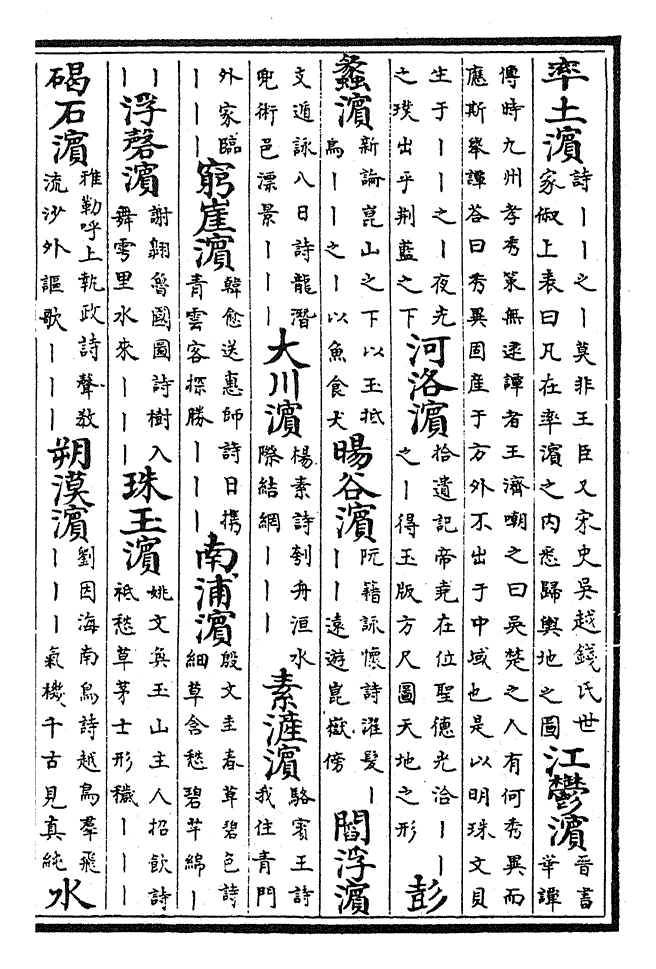 率土濱詩丨丨之丨莫非王臣又宋史吳越錢氏世家俶上表曰凡在率濱之內悉歸輿地之圖江鬱濱晉書華譚
傳時九州孝秀策無逮譚者王濟嘲之曰吳楚之人有何秀異而應斯舉譚答曰秀異固產于方外不出于中域也是以明珠文貝
生于丨丨之丨夜光之璞出乎荆藍之下河洛濱拾遺記帝堯在位聖德光洽丨丨之丨得玉版方尺圖天地之形彭
蠡濱新論崑山之下以玉抵烏丨丨之丨以魚食犬暘谷濱阮籍詠懷詩濯髮丨丨丨遠遊崑嶽傍閻浮濱
文遁詠八日詩龍潛兜術邑漂景丨丨丨大川濱楊素詩刳舟洹水際結網丨丨丨素滻濱駱賓王詩我住青門
外家臨丨丨丨窮崖濱韓愈送惠師詩日攜青雲客探勝丨丨丨南浦濱殷文圭春草碧色詩細草含愁碧芊綿丨
丨丨浮磬濱謝翱魯國圖詩樹入舞雩里水來丨丨丨珠玉濱姚文奐玉山主人招飲詩祗愁草茅士形穢丨丨丨
碣石濱雅勒呼上執政詩聲教流沙外謳歌丨丨丨朔漠濱劉因海南鳥詩越鳥羣飛丨丨丨氣機千古見真純水